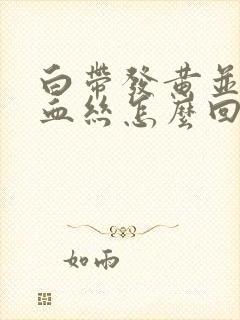 白帶發黃並
血絲怎麼回
如雨